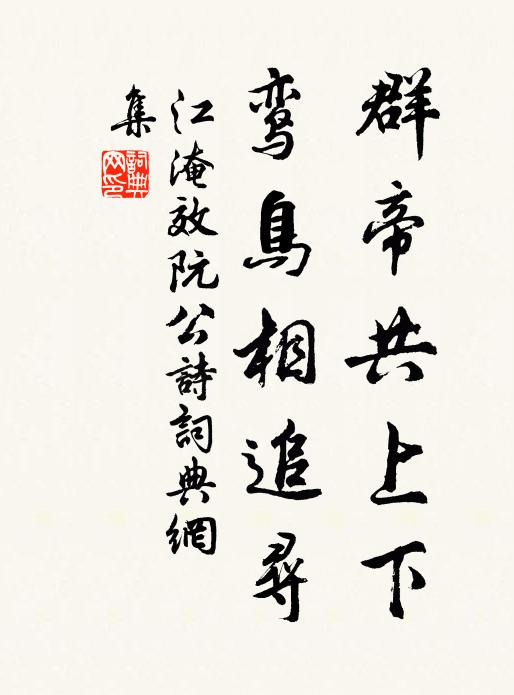 群帝共上下
鸾鳥相追尋
江淹效阮公詩詞典網
集
詞典
网印